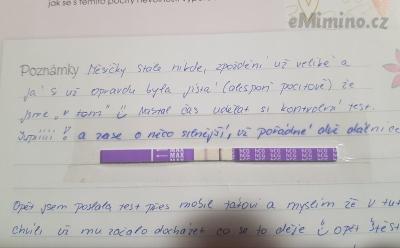 jak se s těmito pocity nevolnosti vypoř
eMimino.cz
Poznámky Měsíčky stále nikde, zpoždění už veliké a
já s už opravdu byla jistá (alespoň pocitově) že
jsme „v tom" Nastal čas udělat si kontrolní test.
a zase o něco silnější, už pořádné dvě
MAX
MAX
HCG HCG HCG HCG HCG
Opět jsem poslala test přes mobil taťovi a myslím že v tu
chvíli už mu začalo docházet co se to děje Opět